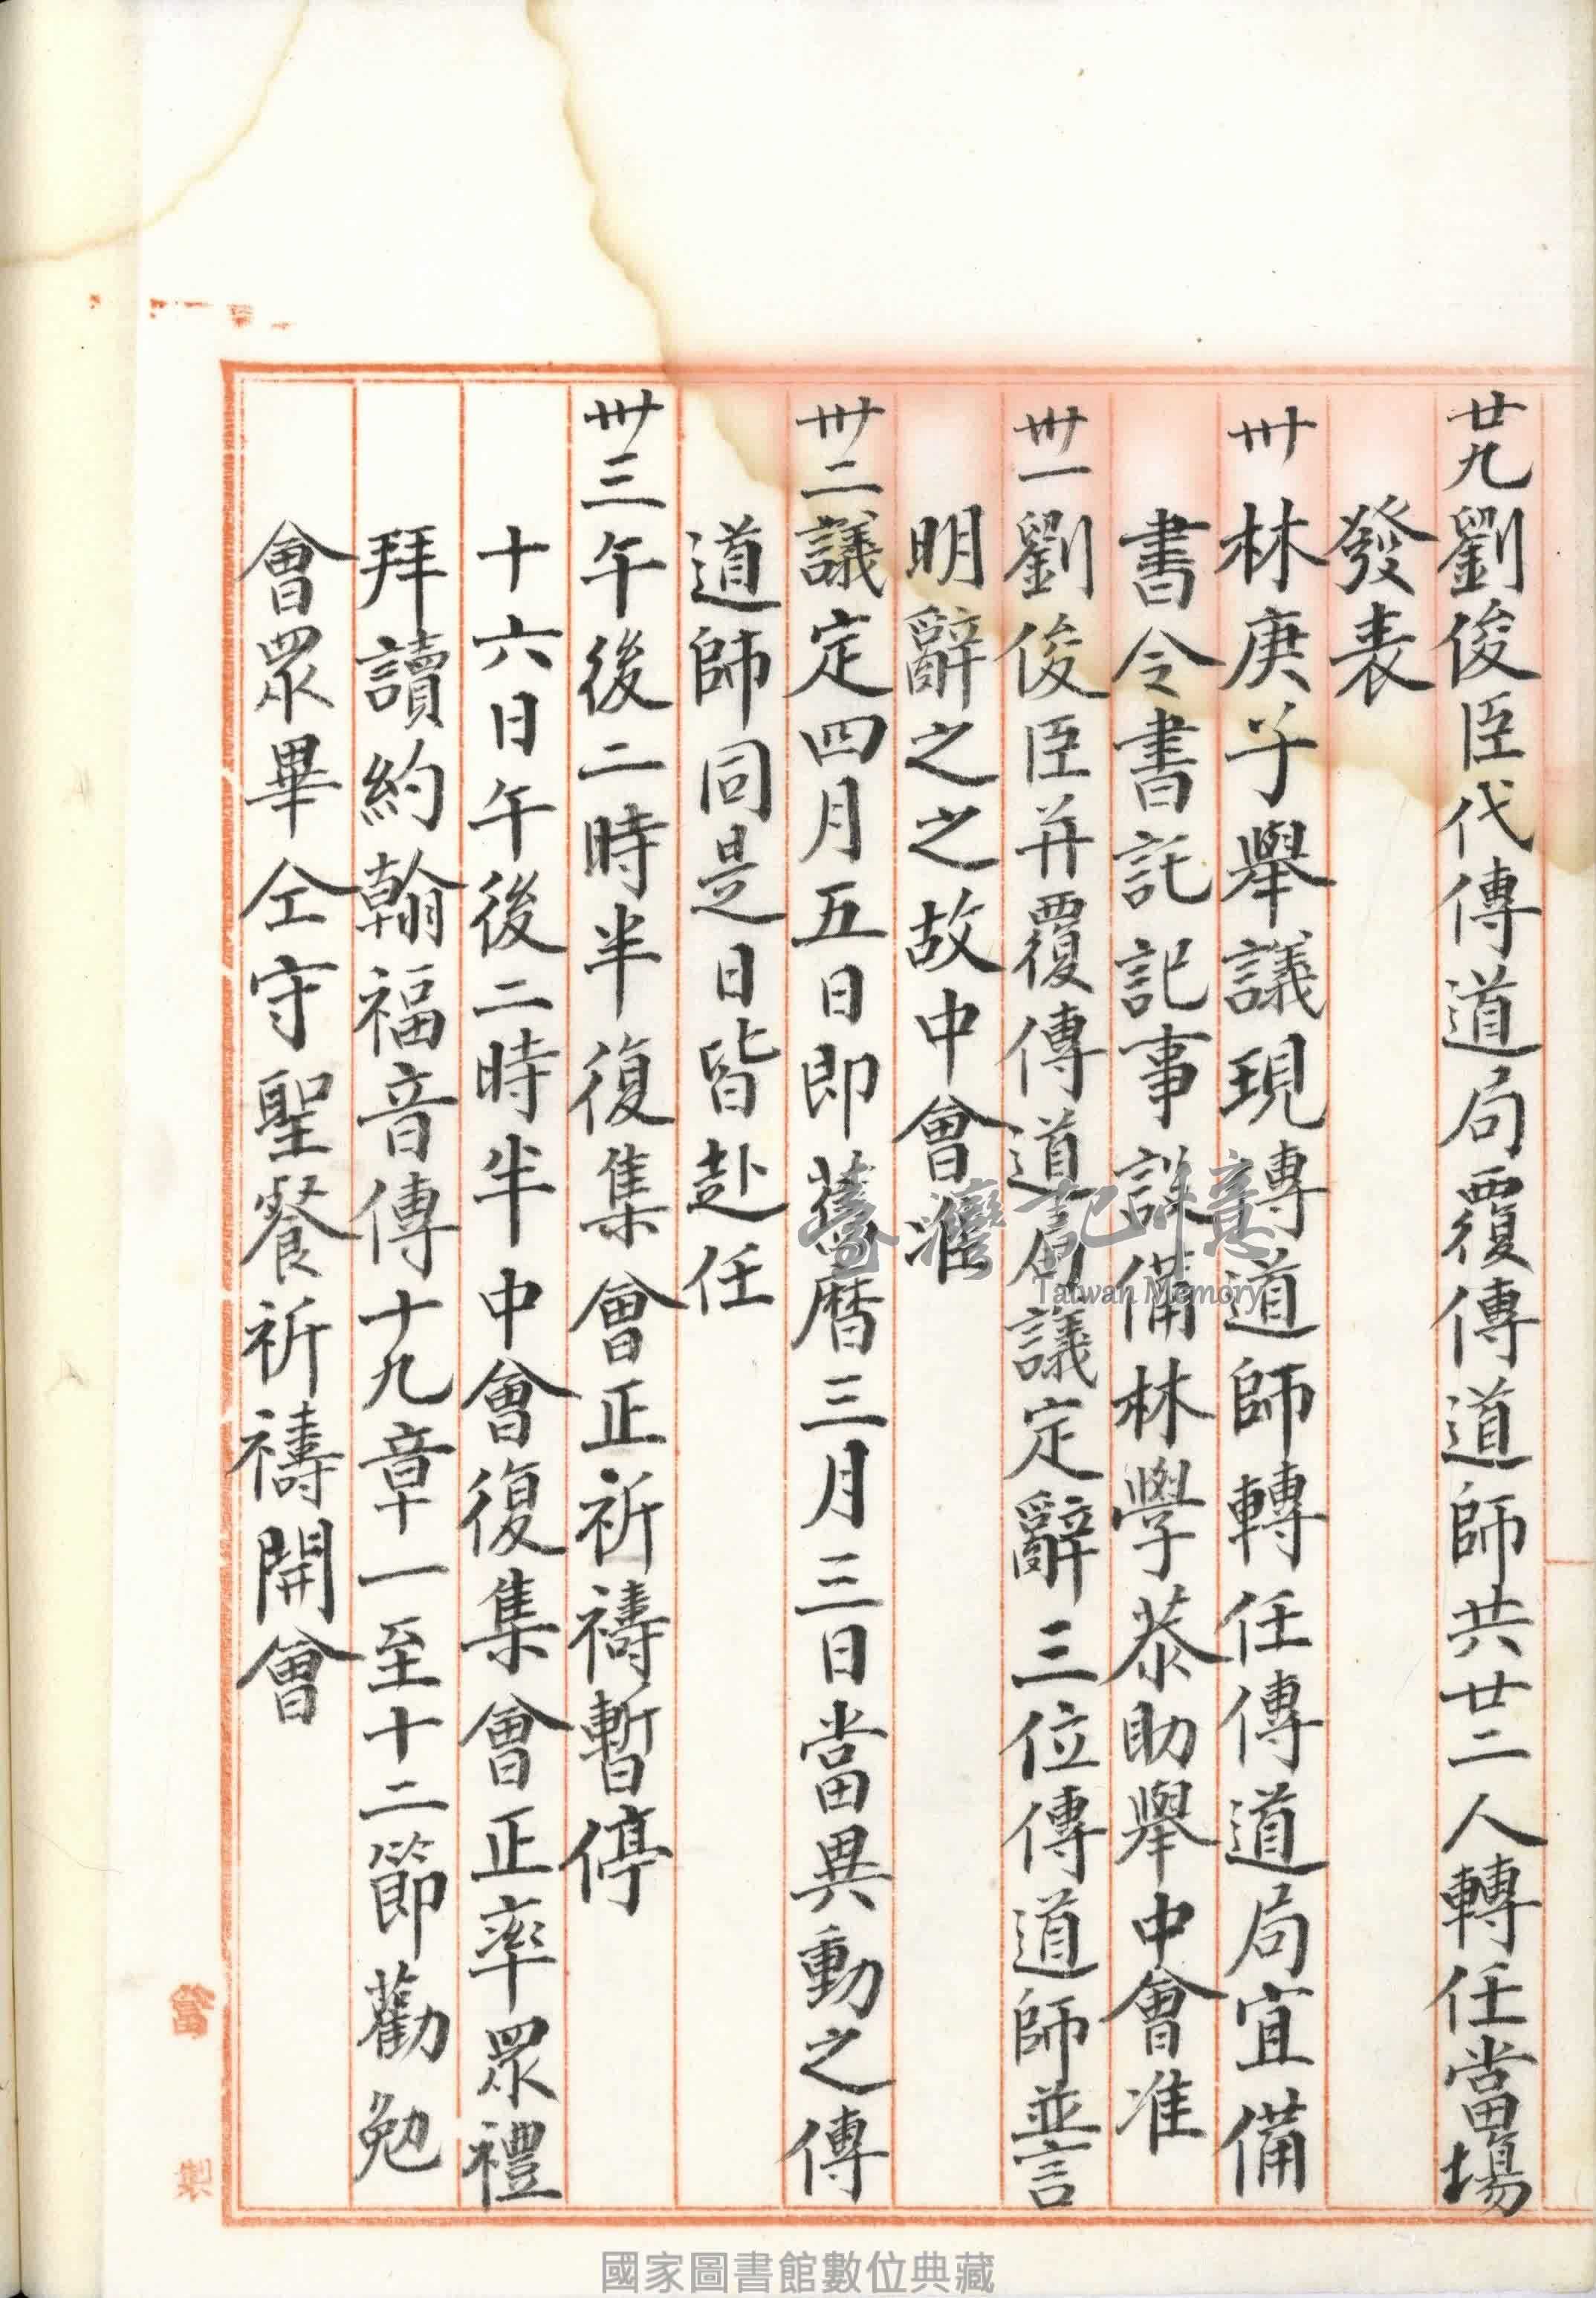 廿九劉俊臣代傳道局覆傳道師共廿二人轉任當場
發表
卅林庚子舉議現轉道師轉任傳道局宜備
書令書託記事詳備林學恭助舉中會准
卅一劉俊臣并覆傳道局議定辭三位傳道師並言
明辭之之故中會准
卅二議定四月五日即舊曆三月三日當異動之傳
道師同是日皆赴任
卅三午後二時半復集會正祈禱暫停
十六日午後二時半中會復集會正率眾禮
拜讀約翰福音傳十九章一至十二節勸勉
會眾畢仝守聖餐祈禱開會
臺灣記憶
Taiwan Memory
國家圖書館數位典藏